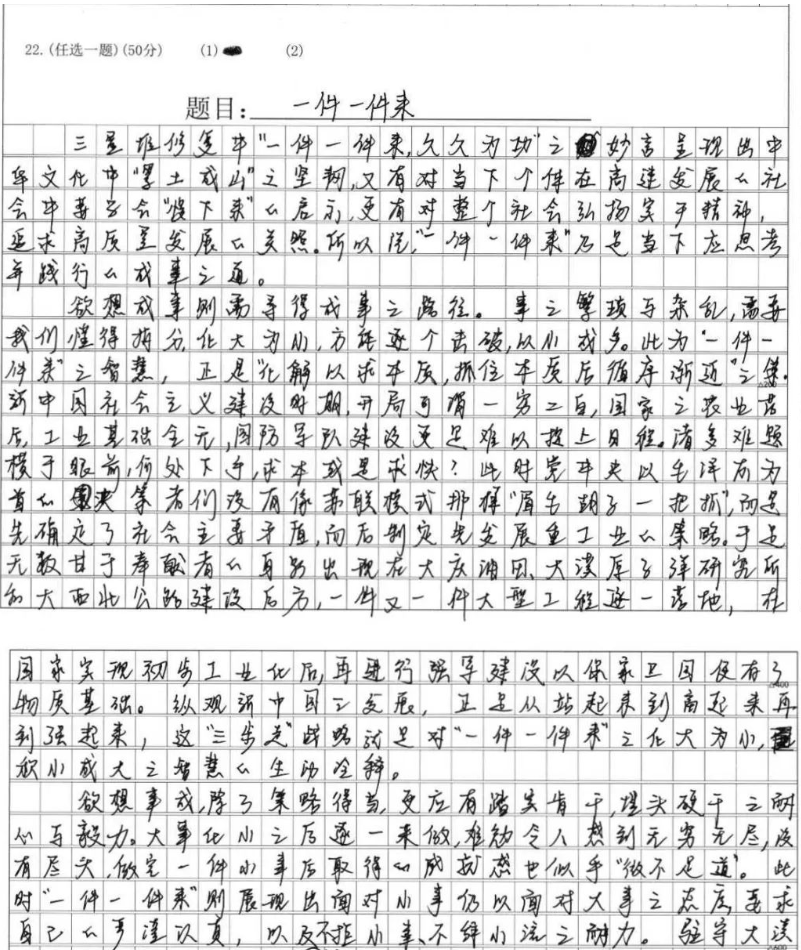 22.(任选一题)(50分) (1) (2)
题目: 一件一件来
三星堆修复中"一件一件来,久久为功"之妙言呈现出中
华文化中"累土成山"之坚韧,又有对当下个体在高速发展的社
会中要学会"慢下来"的启示,更有对整个社会弘扬实干精神,
追求高质量发展的关照。所以说,"一件一件来"乃是当下应思考
并践行的成事之道。
欲想成事则需寻得成事之路径。事之繁琐与杂乱,需要
我们懂得拆分,化大为小,方能逐个击破,以小成多。此为"一件一
件来"之智慧,正是"化解以求本质,抓住本质后循序渐进"之集。
新中国社会主义建设时期,开局可谓一穷二白,国家之农业落
后,工业基础全无,国防军队建设更是难以提上日程。诸多难题
横于眼前,何处下手,求本或是求快?此时党中央以毛泽东为
首的 等者们没有像苏联模式那样"眉毛胡子一把抓",而是
先确定了社会主要矛盾,而后制定先发展重工业的策略。于是
无数甘于奉献者的身影出现在大庆油田、大漠原子弹研究所
和大西北公路建设后方,一件又一件大型工程逐一落地,在
国家实现初步工业化后,再进行强军建设以保家卫国便有了
物质基础。纵观新中国之发展,正是从站起来到富起来再
到强起来,这"三步走"战略就是对"一件一件来"之化大为小,
积小成大之智慧的生动诠释。
欲想事成,除了策略得当,更应有踏实肯干,埋头硬干之耐
心与毅力。大事化小之后逐一来做,难免令人想到无穷无尽,没
有尽头,做完一件小事后取得的成就感也似乎"微不足道"。此
时"一件一件来"则展现出面对小事仍以面对大事之态度要求
自己的严谨认真,以及不拒小事、不绊小流之耐力。驻守大漠